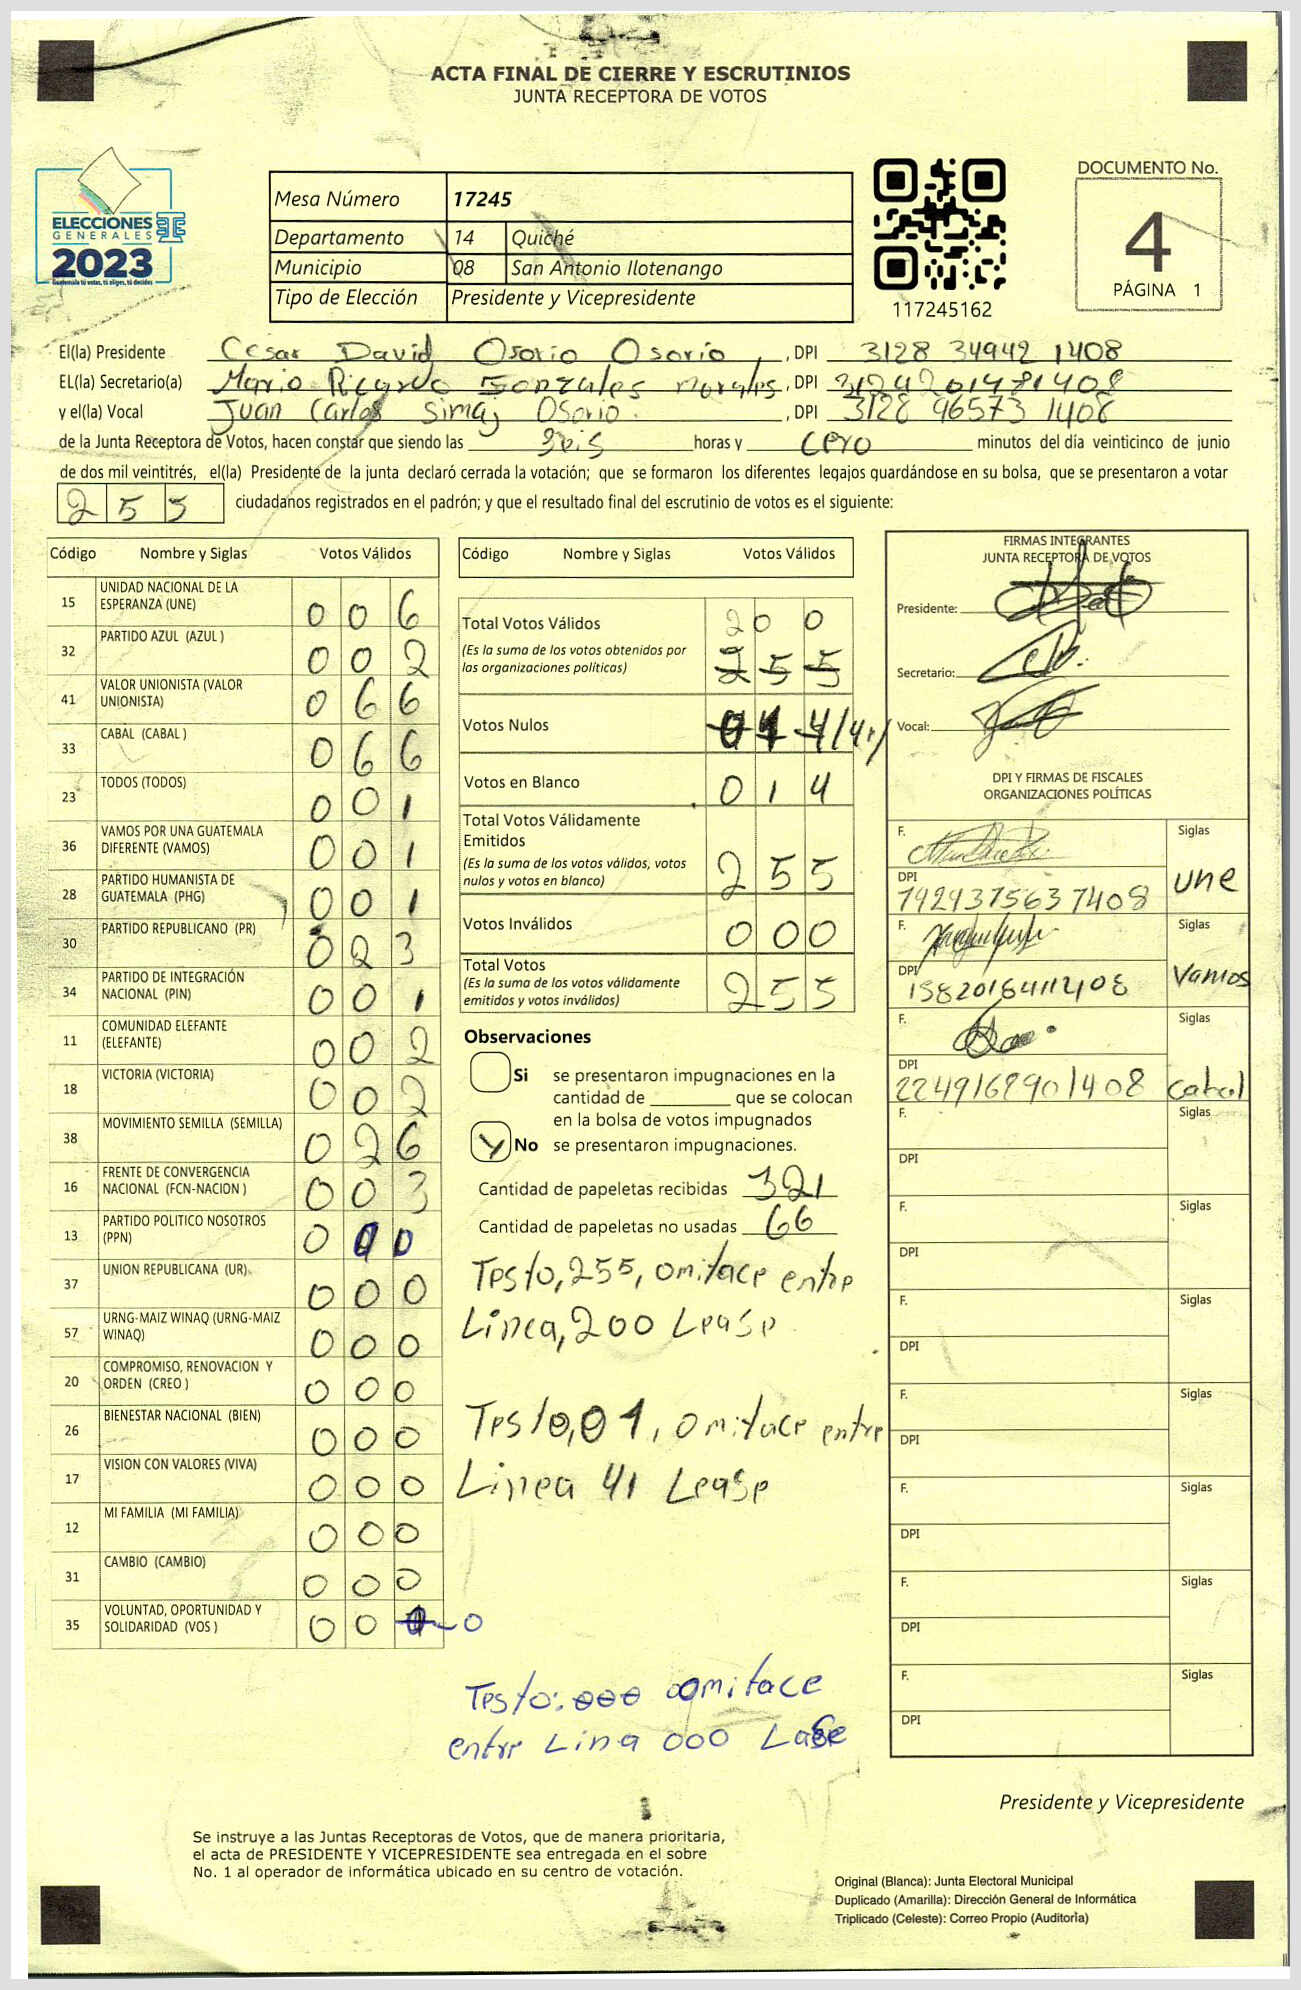 ACTA FINAL DE CIERRE Y ESCRUTINIOS
JUNTA RECEPTORA DE VOTOS
ELECCIONES
GENERALES
2023
Guatemala tú votas, tú eliges, tú decides
Mesa Número 17245
Departamento 14 Quiché
Municipio 08 San Antonio Ilotenango
Tipo de Elección Presidente y Vicepresidente
117245162
DOCUMENTO No.
4
PÁGINA 1
El(la) Presidente Cesar David Osorio Osorio, DPI 3128 34942 1408
EL(la) Secretario(a) Mario Ricardo Gonzales morales, DPI
y el(la) Vocal Juan Carlos Simaj Osorio, DPI 3128 96573 1408
de la Junta Receptora de Votos, hacen constar que siendo las Seis horas y cero minutos del día veinticinco de junio
de dos mil veintitrés, el(la) Presidente de la junta declaró cerrada la votación; que se formaron los diferentes legajos guardándose en su bolsa, que se presentaron a votar
255 ciudadanos registrados en el padrón; y que el resultado final del escrutinio de votos es el siguiente:
Código Nombre y Siglas Votos Válidos
15 UNIDAD NACIONAL DE LA ESPERANZA (UNE) 0 0 6
32 PARTIDO AZUL (AZUL ) 0 0 2
41 VALOR UNIONISTA (VALOR UNIONISTA) 0 6 6
33 CABAL (CABAL ) 0 6 6
23 TODOS (TODOS) 0 0 1
36 VAMOS POR UNA GUATEMALA DIFERENTE (VAMOS) 0 0 1
28 PARTIDO HUMANISTA DE GUATEMALA (PHG) 0 0 1
30 PARTIDO REPUBLICANO (PR) 0 2 3
34 PARTIDO DE INTEGRACIÓN NACIONAL (PIN) 0 0 1
11 COMUNIDAD ELEFANTE (ELEFANTE) 0 0 2
18 VICTORIA (VICTORIA) 0 0 2
38 MOVIMIENTO SEMILLA (SEMILLA) 0 2 6
16 FRENTE DE CONVERGENCIA NACIONAL (FCN-NACION ) 0 0 3
13 PARTIDO POLITICO NOSOTROS (PPN) 0 0 0
37 UNION REPUBLICANA (UR) 0 0 0
57 URNG-MAIZ WINAQ (URNG-MAIZ WINAQ) 0 0 0
20 COMPROMISO, RENOVACION Y ORDEN (CREO ) 0 0 0
26 BIENESTAR NACIONAL (BIEN) 0 0 0
17 VISION CON VALORES (VIVA) 0 0 0
12 MI FAMILIA (MI FAMILIA) 0 0 0
31 CAMBIO (CAMBIO) 0 0 0
35 VOLUNTAD, OPORTUNIDAD Y SOLIDARIDAD (VOS ) 0 0 0
Código Nombre y Siglas Votos Válidos
Total Votos Válidos 2 0 0
(Es la suma de los votos obtenidos por las organizaciones políticas) 2 5 5
Votos Nulos
Votos en Blanco 0 1 4
Total Votos Válidamente Emitidos
(Es la suma de los votos válidos, votos nulos y votos en blanco) 2 5 5
Votos Inválidos 0 0 0
Total Votos
(Es la suma de los votos válidamente emitidos y votos inválidos) 2 5 5
Observaciones
Si se presentaron impugnaciones en la
cantidad de ________ que se colocan
en la bolsa de votos impugnados
No se presentaron impugnaciones.
Cantidad de papeletas recibidas 321
Cantidad de papeletas no usadas 66
Testo, 255, omitace entre
Linea, 200 Lease
Testo, 01, omitace entre
Linea 41 Lease
Testo: 000 omitace
entre Lina 000 Lease
FIRMAS INTEGRANTES
JUNTA RECEPTORA DE VOTOS
Presidente:
Secretario:
Vocal:
DPI Y FIRMAS DE FISCALES
ORGANIZACIONES POLÍTICAS
F. Siglas
DPI une
F. Siglas
DPI Vamos
F. Siglas
DPI 2249168901408 cabal
F. Siglas
DPI
F. Siglas
DPI
F. Siglas
DPI
F. Siglas
DPI
F. Siglas
DPI
F. Siglas
DPI
F. Siglas
DPI
Presidente y Vicepresidente
Se instruye a las Juntas Receptoras de Votos, que de manera prioritaria,
el acta de PRESIDENTE Y VICEPRESIDENTE sea entregada en el sobre
No. 1 al operador de informática ubicado en su centro de votación.
Original (Blanca): Junta Electoral Municipal
Duplicado (Amarilla): Dirección General de Informática
Triplicado (Celeste): Correo Propio (Auditoría)